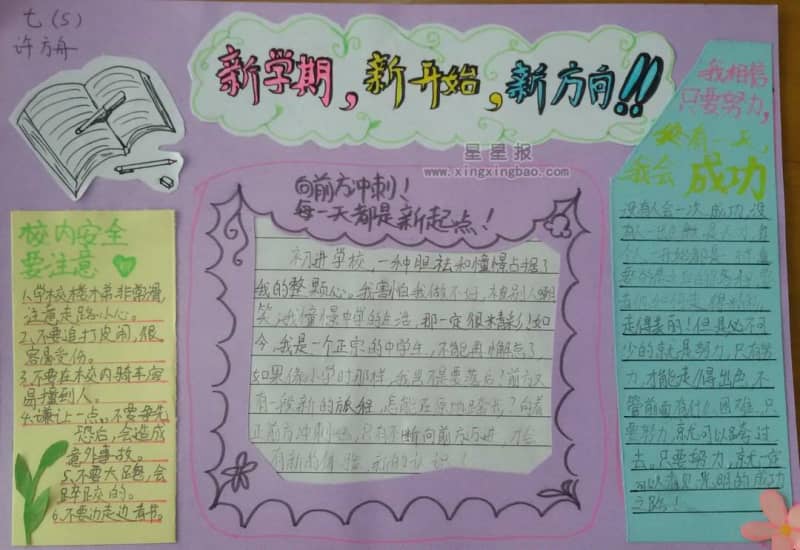 七(5)
许方舟
新学期,新开始,新方向!!
星星报
www.xingxingbao.com
校内安全
要注意
1.学校楼梯非常滑,
注意走路小心。
2.不要追打皮闹,很
容易受伤。
3.不要在校内骑车容
易撞到人。
4.谦让一点,不要争先
恐后,会造成
意外事故。
5.不要大跑,会
碎的。
6.不要边走边看书。
向前方冲刺!
每一天都是新起点!
初进学校,一种胆祛和憧憬占据了
我的整颗心。我害怕我做不好,被别人嘲
笑,我憧憬中学的生活,那一定很精彩!如
今,我是一个正宗的中学生,不能再懒点了
如果像小学时那样,我思不要落后?前方又
有一段新的旅程,怎能在原地踏步?向着
正前方冲刺吧,只有不断向前方迈进,才会
有新的体验,新的认识!
我相信
只要努力,
有一天,
我会成功
没有人会一次成功,没
有人一
一开始都是一
走得美的!但是必不可
少的就是努力,只有努
力,才能走得出色,不
管前面有什么困难,只
要努力,就可以跨过
去。只要努力,就一定
可以看见光明的成功
之路!